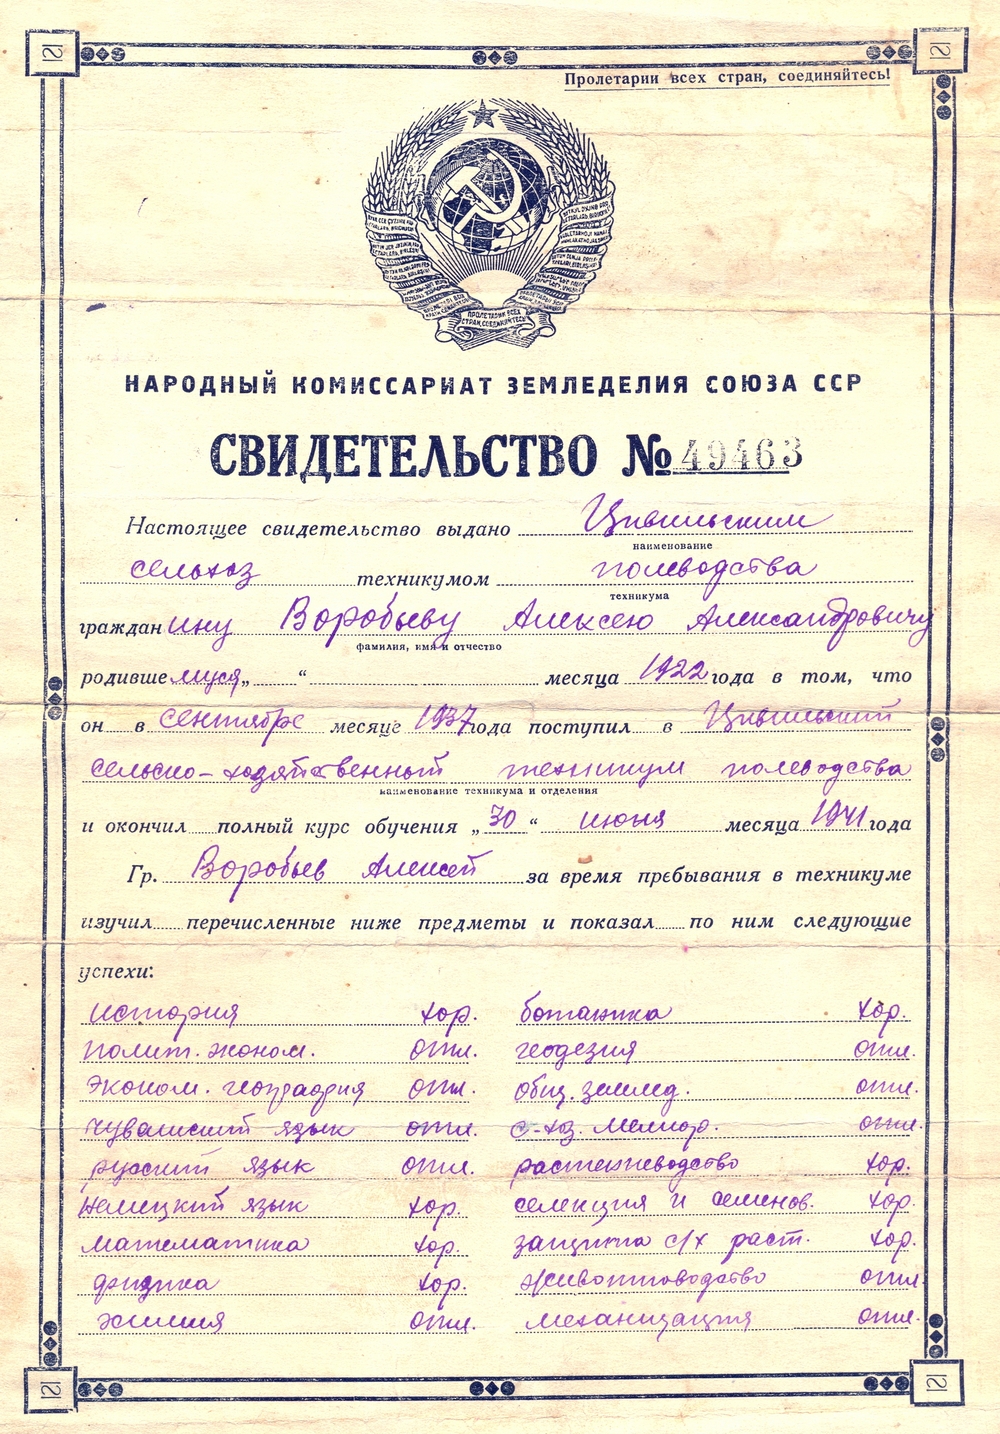 Пролетарии всех стран, соединяйтесь!
ПРОЛЕТАРИИ ВСЕХ
СТРАН, СОЕДИНЯЙТЕСЬ!
НАРОДНЫЙ КОМИССАРИАТ ЗЕМЛЕДЕЛИЯ СОЮЗА ССР
СВИДЕТЕЛЬСТВО № 49463
Настоящее свидетельство выдано Цивильским
наименование
сельхоз техникумом полеводства
техникума
граждан ину Воробьеву Алексею Александровичу
фамилия, имя и отчество
родивше муся „ “ месяца 1922 года в том, что
он в сентябре месяце 1937 года поступил в Цивильский
сельско-хозяйственный техникум полеводства
наименование техникума и отделения
и окончил полный курс обучения „30“ июня месяца 1941 года
Гр. Воробьев Алексей за время пребывания в техникуме
изучил перечисленные ниже предметы и показал по ним следующие
успехи:
история хор. ботаника хор.
полит. эконом. отл. геодезия отл.
эконом. география отл. общ. землед. отл.
чувашский язык отл. с-хоз. мелиор. отл.
русский язык отл. растениеводство хор.
немецкий язык хор. селекция и семенов. хор.
математика хор. защита с/х раст. хор.
физика хор. животноводство отл.
химия отл. механизация отл.